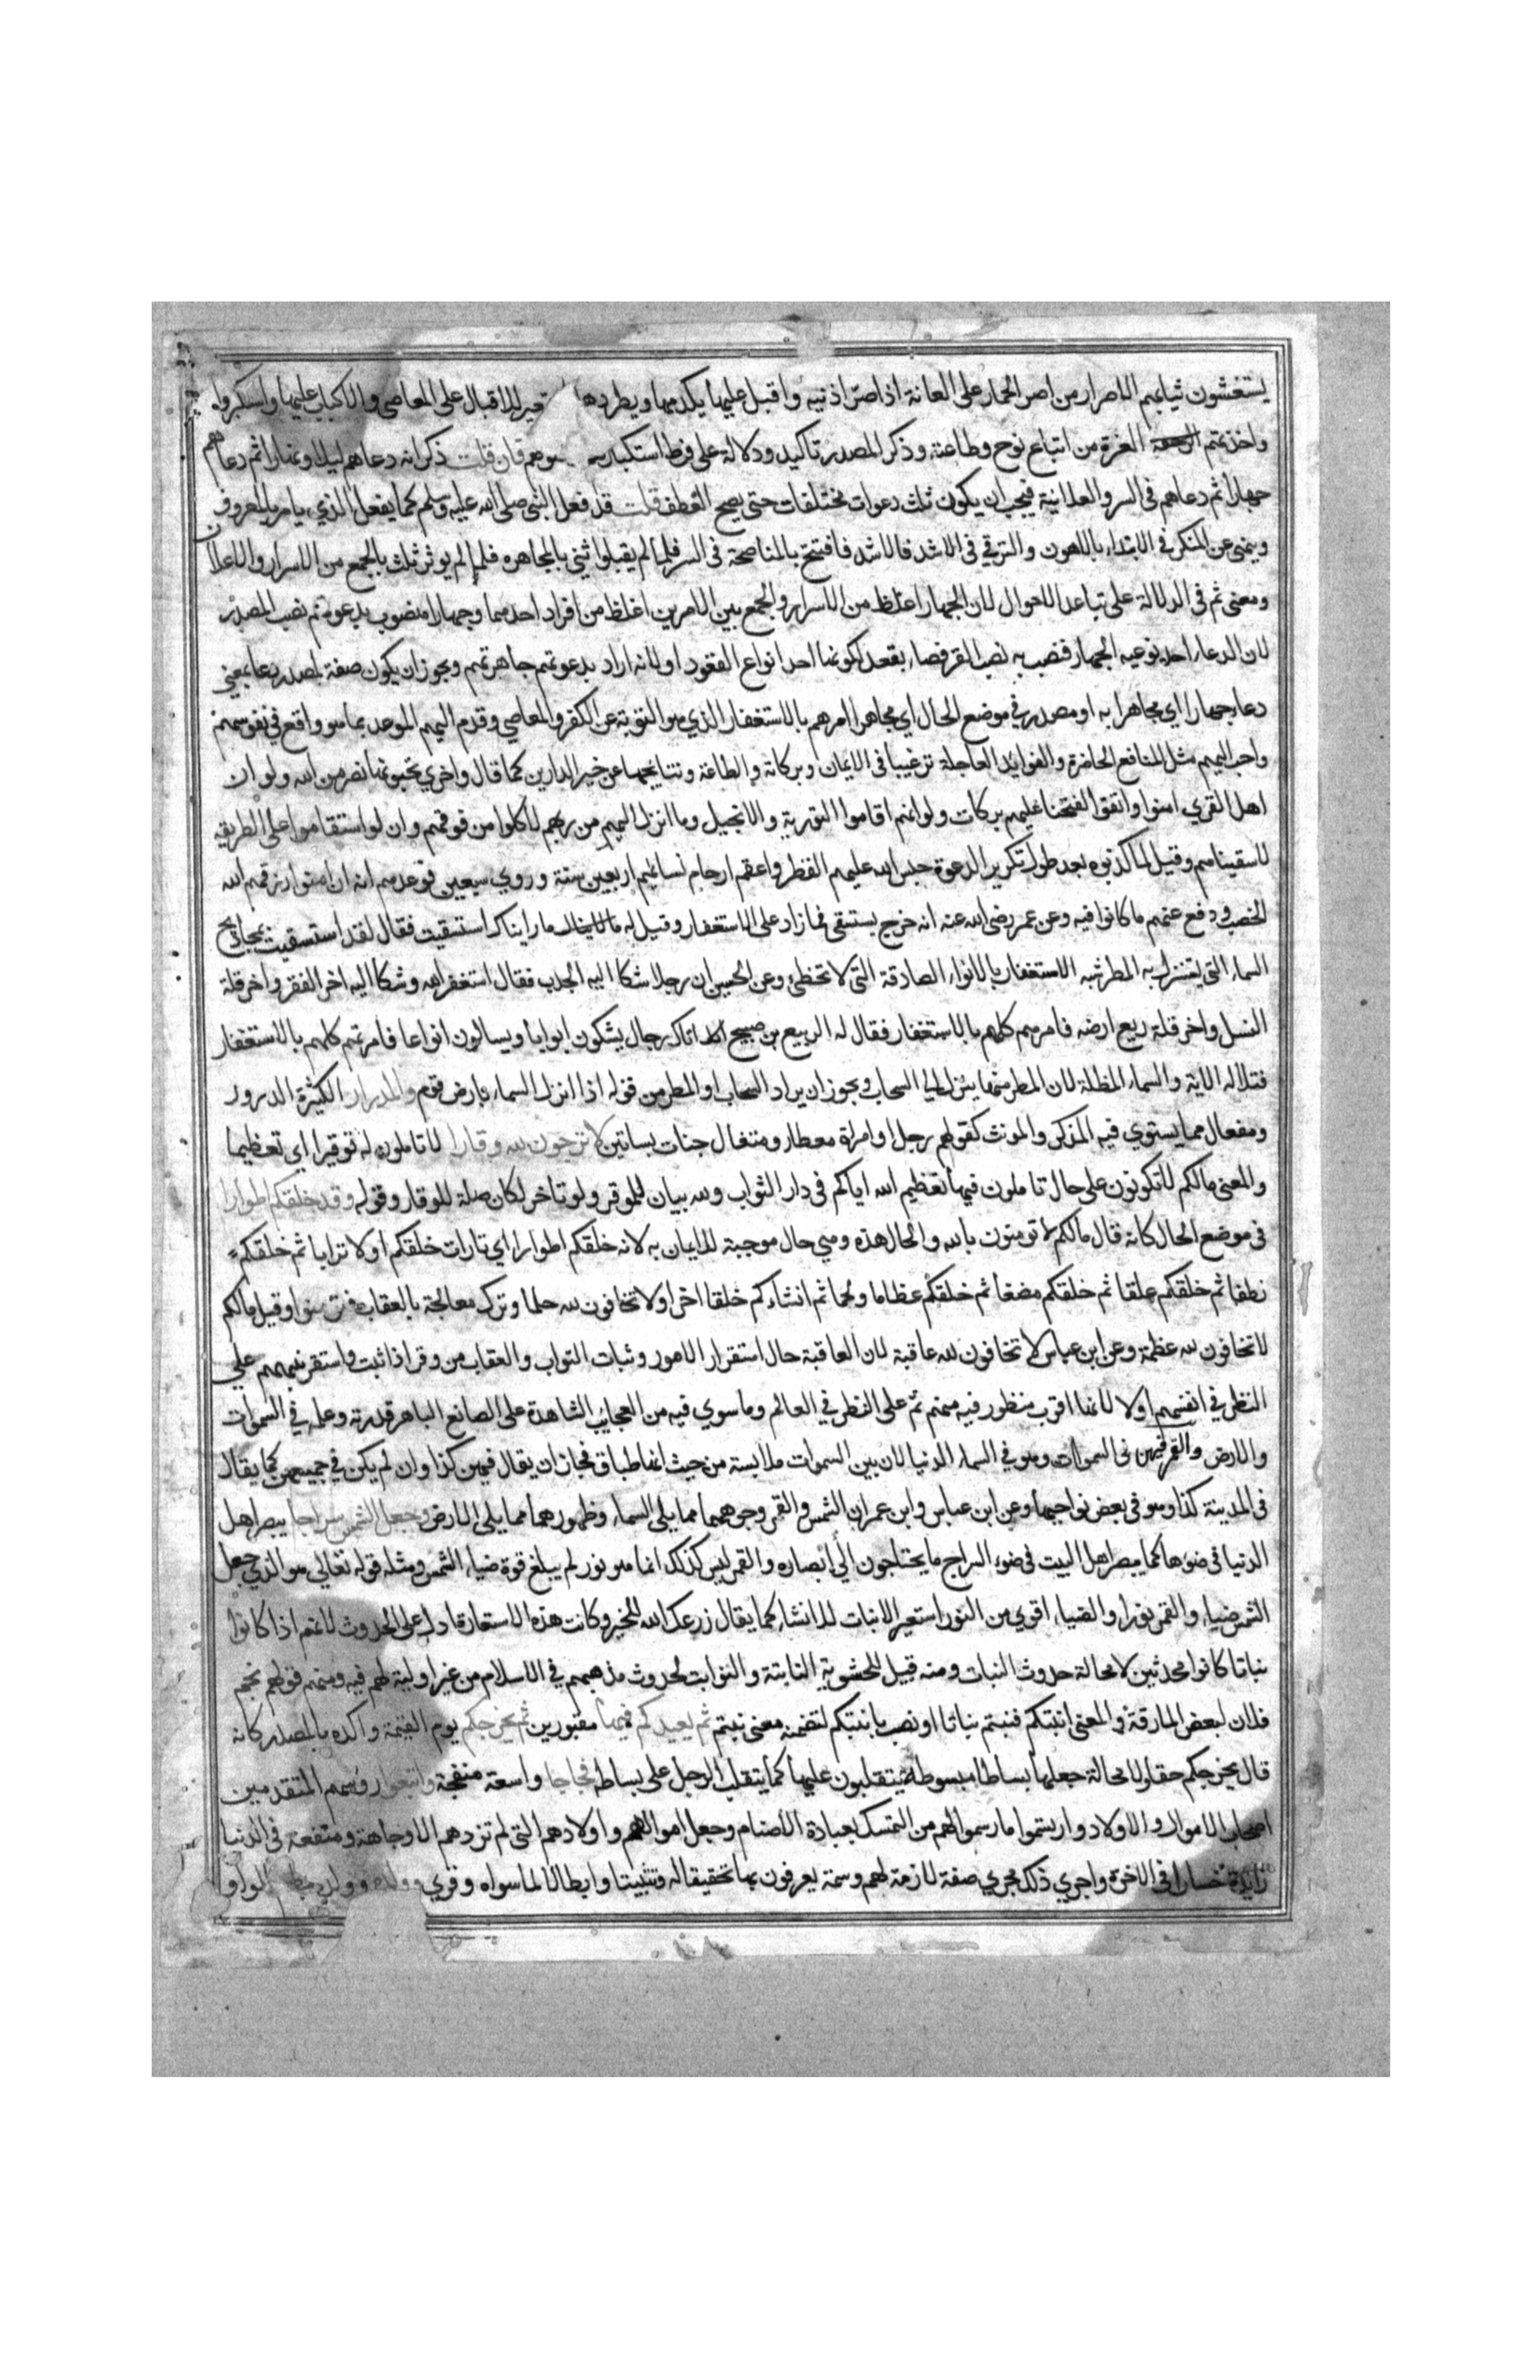 يستغشون ثيابهم الاصرار من اصر الحمار على العانة اذا صر اذنيه واقبل عليها يكدمها ويطردها استعير للاقبال على المعاصي والاكباب عليها واستكبروا
واخذتهم العزة من اتباع نوح وطاعته وذكر المصدر تاكيد ودلالة على فرط استكبارهم فان قلت ذكر انه دعاهم ليلا ونهارا ثم دعاهم
جهارا ثم دعاهم في السر والعلانية فيجب ان يكون ثلث دعوات مختلفات حتى يصح العطف قلت قد فعل النبي صلى الله عليه وسلم كما يفعل الذي يامر بالمعروف
وينهى عن المنكر في الابتداء بالاهون والترقي في الاشد فالاشد فافتتح بالمناصحة في السر فلما لم يقبلوا ثني بالمجاهره فلما لم يوثر ثلث بالجمع من الاسرار والاعلان
ومعنى ثم في الدلالة على تباعد الاحوال لان الجهار اغلظ من الاسرار والجمع بين الامرين اغلظ من افراد احدهما وجهارا منصوب بدعوتهم نصب المصدر
لان الدعاء احد نوعيه الجهار فنصب به نصب القرفصاء بقعد لكونها احد انواع القعود او لانه اراد بدعوتهم جاهرتهم ويجوز ان يكون صفة لمصدر دعا بمعنى
دعاء جهارا اي مجاهرا به او مصدر في موضع الحال اي مجاهرا امرهم بالاستغفار الذي هو التوبة عن الكفر والمعاصي وقدم اليهم الموعد بما هو واقع في نفوسهم
واحب اليهم مثل المنافع الحاضرة والفوايد العاجلة ترغيبا في الايمان وبركاته والطاعة ونتايجها عن خير الدارين كما قال واخري تحبونها نصر من الله ولو ان
اهل القري امنوا واتقوا لفتحنا عليهم بركات ولو انهم اقاموا التورية والانجيل وما انزل اليهم من ربهم لاكلوا من فوقهم وان لو استقاموا على الطريقه
لاسقيناهم وقيل لما كذبوه بعد طول تكرير الدعوة حبس الله عليهم القطر واعقم ارحام نسائهم اربعين سنة وروي سبعين فوعدهم انه ان امنوا رزقهم الله
الخصب ودفع عنهم ما كانوا فيه وعن عمر رضى الله عنه انه خرج يستسقى فما زاد على الاستغفار وقيل له ما رايناك استسقيت فقال لقد استسقيت بمجاديح
السماء التى يستنزل به المطر شبه الاستغفار بالانواء الصادقة التى لا تخطئ وعن الحسن ان رجلا شكا اليه الجدب فقال استغفر الله وشكا اليه اخر الفقر واخر قلة
النسل واخر قلة ريع ارضه فامرهم كلهم بالاستغفار فقال له الربيع بن صبيح اتاك رجال يشكون ابوابا ويسالون انواعا فامرتهم كلهم بالاستغفار
فتلا له الاية والسماء المظلة لان المطر منها ينزل الي السحاب ويجوز ان يراد السحاب او المطر من قوله اذا نزل السماء بارض قوم والمدرار الكثيرة الدرور
ومفعال مما يستوي فيه المذكر والمونث كقولهم رجل او امراة معطار ومتفال جنات بساتين لا ترجون لله وقارا لا تاملون له توقيرا اي تعظيما
والمعنى مالكم لا تكونون على حال تاملون فيها تعظيم الله اياكم في دار الثواب ولله بيان للموقر ولو تاخر لكان صلة للوقار وقوله وقد خلقكم اطوارا
في موضع الحال كانه قال مالكم لا تومنون بالله والحال هذه وهي حال موجبة للايمان به لانه خلقكم اطوارا اي تارات خلقكم اولا ترابا ثم خلقكم
نطفا ثم خلقكم علقا ثم خلقكم مضغا ثم خلقكم عظاما ولحما ثم انشاءكم خلقا اخر اولا تخافون لله حلما وترك معالجة بالعقاب فتومنوا وقيل مالكم
لا تخافون لله عظمة وعن ابن عباس لا تخافون لله عاقبة لان العاقبة حال استقرار الامور وثبات الثواب والعقاب من وقر اذا ثبت واستقر نبههم على
النظر في انفسهم اولا لانها اقرب منظور فيه منهم ثم على النظر في العالم وما سوي فيه من العجايب الشاهدة على الصانع الباهر قدرته وعلمه في السموات
والارض والقمر فيهن في السموات وهو في السماء الدنيا لان بين السموات ملابسة من حيث انها طباق فجاز ان يقال فيهن كذا وان لم يكن في جميعهن كما يقال
في المدينة كذا وهو في بعض نواحيها وعن ابن عباس وابن عمر ان الشمس والقمر وجوههما مما يلي السماء وظهورهما مما يلي الارض وجعل الشمس سراجا يبصر اهل
الدنيا في ضوءها كما يبصر اهل البيت في ضوء السراج ما يحتاجون الي ابصاره والقمر ليس كذلك انما هو نور لم يبلغ قوة ضياء الشمس ومثله قوله تعالى هو الذي جعل
الشمس ضياء والقمر نورا والضياء اقوي من النور استعير الانبات للانشاء كما يقال زرعك الله للخير وكانت هذه الاستعارة ادل على الحدوث لانهم اذا كانوا
نباتا كانوا محدثين لا محالة حدوث النبات ومنه قيل للحشوية النابتة والنوابت لحدوث مذهبهم في الاسلام من غير اولية لهم فيه ومنهم قولهم نجم
فلان لبعض المارقة والمعنى انبتكم فنبتم نباتا او نصب بانبتكم لتضمنه معنى نبتم ثم يعيدكم فيها مقبورين ثم يخرجكم يوم القيمة واكده بالمصدر كانه
قال يخرجكم حقا ولا محالة جعلها بساطا مبسوطة تتقلبون عليها كما يتقلب الرجل على بساطه فجاجا واسعة منفجة واتبعوا رؤسهم المتقدمين
اصحاب الاموال والاولاد وارتسموا ما رسموا لهم من التمسك بعبادة الاصنام وجعل اموالهم واولادهم التى لم تزدهم الا وجاهة ومنفعة في الدنيا
زايدة خسارا في الاخرة واجري ذلك مجري صفة لازمة لهم وسمة يعرفون بها تحقيقا له وتثبيتا وابطالا لما سواه وقري وولده وولده الواو